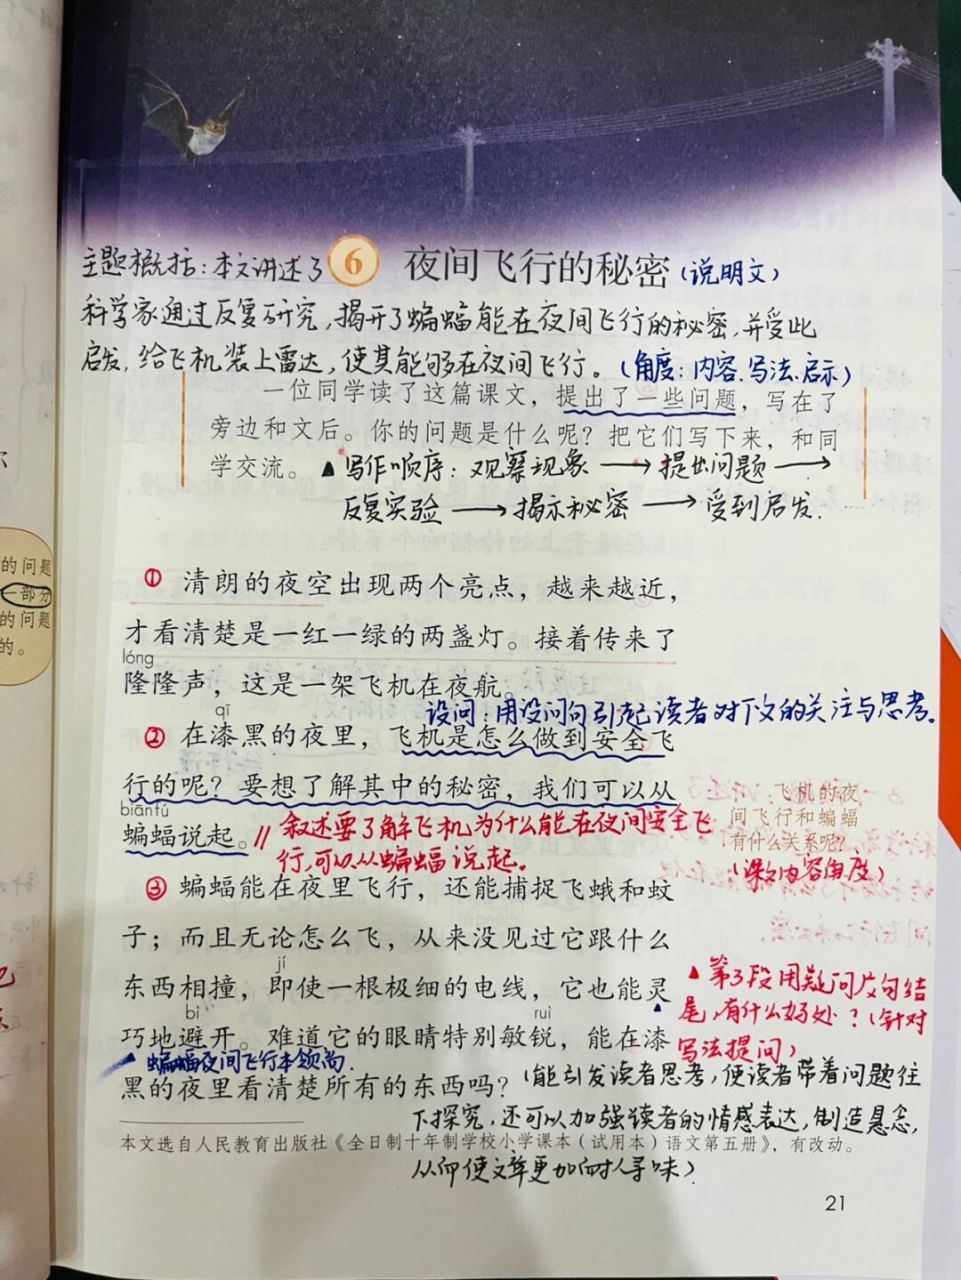 主题概括：本文讲述了 6 夜间飞行的秘密（说明文）
科学家通过反复研究，揭开了蝙蝠能在夜间飞行的秘密，并受此
启发，给飞机装上雷达，使其能够在夜间飞行。（角度：内容、写法、启示）
一位同学读了这篇课文，提出了一些问题，写在了
旁边和文后。你的问题是什么呢？把它们写下来，和同
学交流。▲写作顺序：观察现象→提出问题→
反复实验→揭示秘密→受到启发.
① 清朗的夜空出现两个亮点，越来越近，
才看清楚是一红一绿的两盏灯。接着传来了
lóng
隆隆声，这是一架飞机在夜航。
设问：用设问句引起读者对下文的关注与思考。
qī
② 在漆黑的夜里，飞机是怎么做到安全飞
行的呢？要想了解其中的秘密，我们可以从
biānfú
蝙蝠说起。∥叙述要了解飞机为什么能在夜间安全飞
行，可以从蝙蝠说起。
飞机的夜
间飞行和蝙蝠
有什么关系呢？
（课文内容角度）
③ 蝙蝠能在夜里飞行，还能捕捉飞蛾和蚊
子；而且无论怎么飞，从来没见过它跟什么
jí
东西相撞，即使一根极细的电线，它也能灵
bì ruì
巧地避开。难道它的眼睛特别敏锐，能在漆
▲蝙蝠夜间飞行本领高.
黑的夜里看清楚所有的东西吗？
▲第3段用疑问句结
尾，有什么好处？（针对
写法提问）
（能引发读者思考，使读者带着问题往
下探究，还可以加强读者的情感表达，制造悬念，
从而使文章更加耐人寻味）
本文选自人民教育出版社《全日制十年制学校小学课本（试用本）语文第五册》，有改动。
21
的问题
一部分
的问题
的。